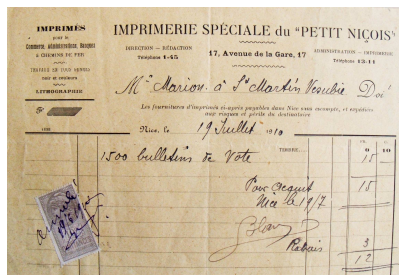 IMPRIMÉS
pour le
Commerce, Administrations, Banques
& CHEMINS DE FER
TRAVAUX EN TOUS GENRES
Noir et couleurs
LITHOGRAPHIE
IMPRIMERIE SPÉCIALE du "PETIT NIÇOIS"
DIRECTION - RÉDACTION
Téléphone 1-45
17, Avenue de la Gare, 17
ADMINISTRATION - IMPRIMERIE
Téléphone 13-11
Mr Marion à St Martin Vesubie Doit
Les fournitures d'imprimés ci-après payables dans Nice sans escompte, et expédiées
aux risques et périls du destinataire
Nice, le 19 Juillet 1910
1500 bulletins de Vote
15
Pour acquit 15
Nice le 19/7
Rabais 3
12